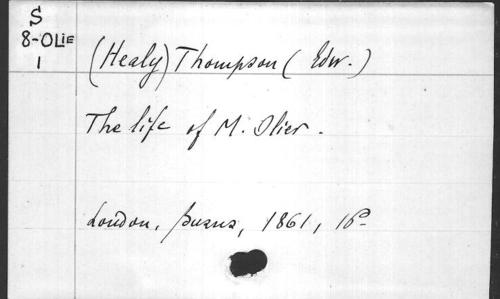 S
8-OLIE
1
(Healy) Thompson (Edw.)
The life of M. Olier.
London, Burns, 1861, 16°